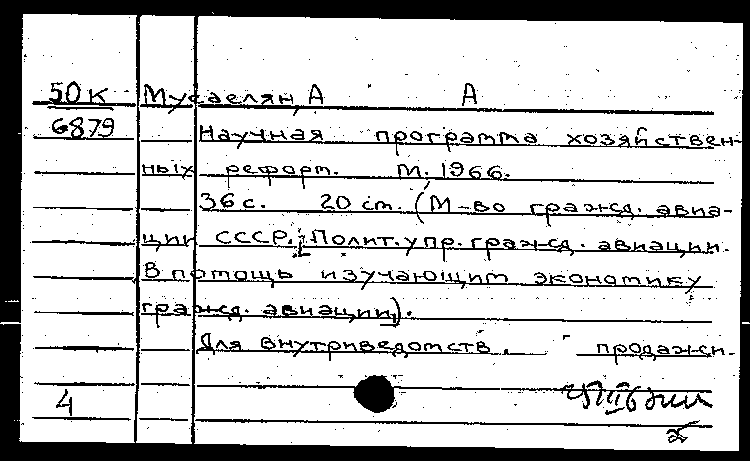 50к Мусаелян, А А
6879 Научная программа хозяйствен-
ных реформ. М. 1966.
36 с. 20 см. (М-во гражд. авиа-
ции СССР. Полит. упр. гражд. авиации.
В помощь изучающим экономику
гражд. авиации).
Для внутриведомств. продажи.
4